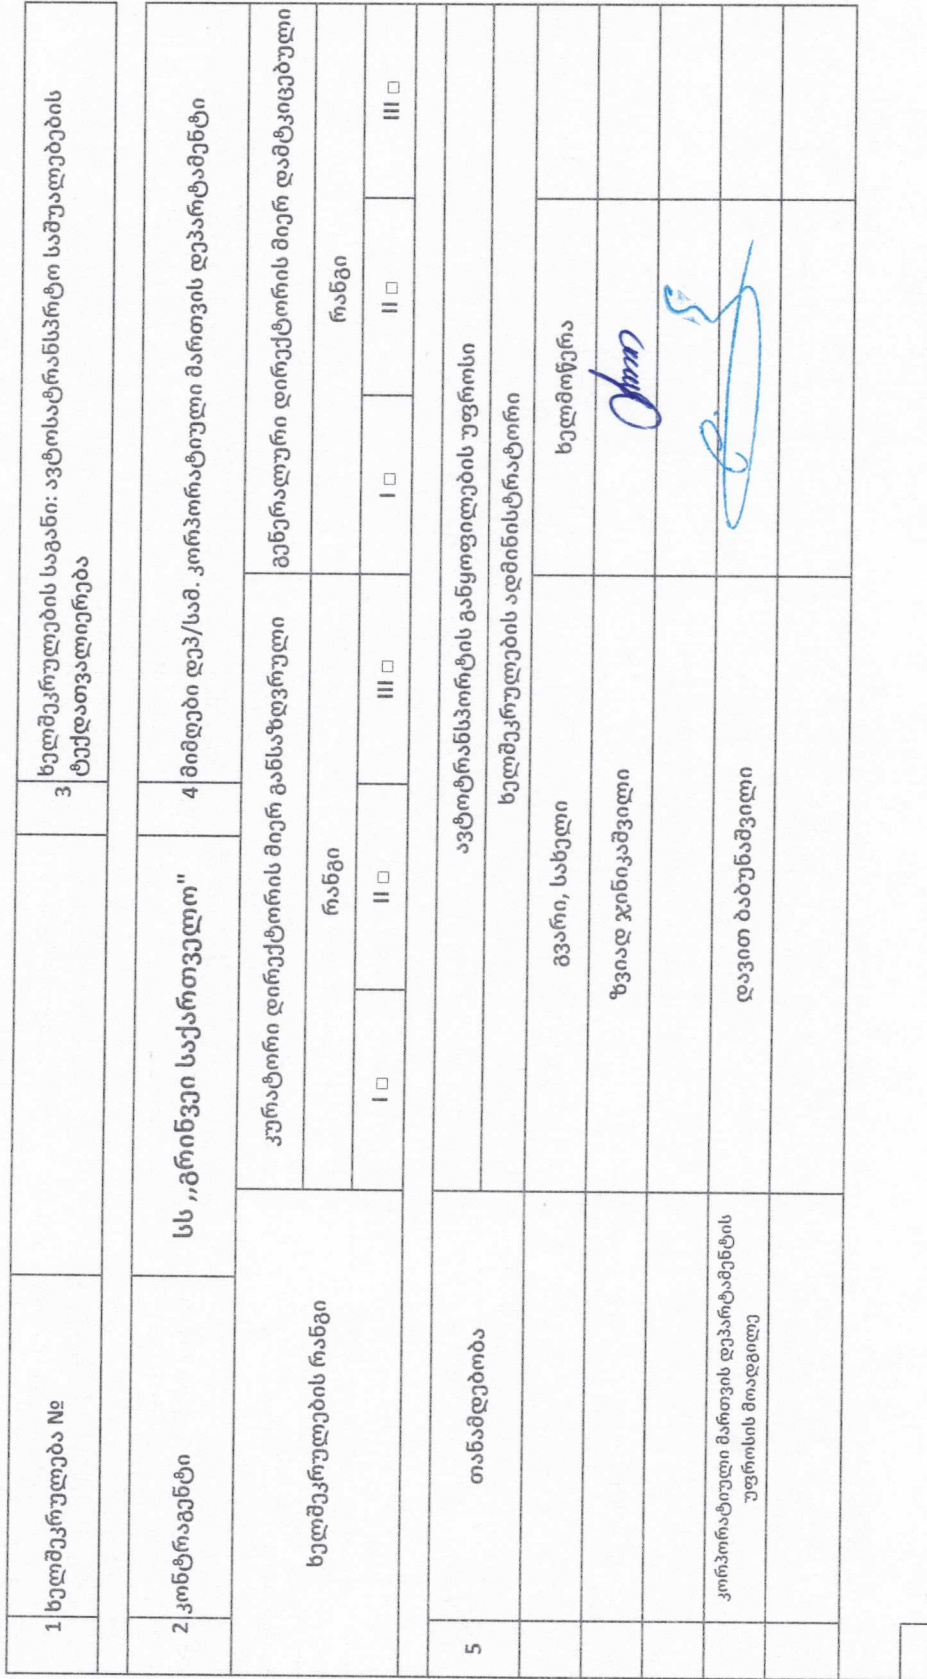 1 ხელშეკრულება №
3 ხელშეკრულების საგანი: ავტოსატრანსპრტო საშუალებების
ტექდათვალიერება
2 კონტრაგენტი
სს ,,გრინვეი საქართველო"
4 მიმღები დეპ/სამ. კორპორატიული მართვის დეპარტამენტი
ხელშეკრულების რანგი
კურატორი დირექტორის მიერ განსაზღვრული
გენერალური დირექტორის მიერ დამტკიცებული
რანგი
რანგი
I □ II □ III □ I □ II □ III □
5
თანამდებობა
ავტოტრანსპორტის განყოფილების უფროსი
ხელშეკრულების ადმინისტრატორი
გვარი, სახელი
ხელმოწერა
ზვიად ჯინიკაშვილი
კორპორატიული მართვის დეპარტამენტის
უფროსის მოადგილე
დავით ბაბუნაშვილი